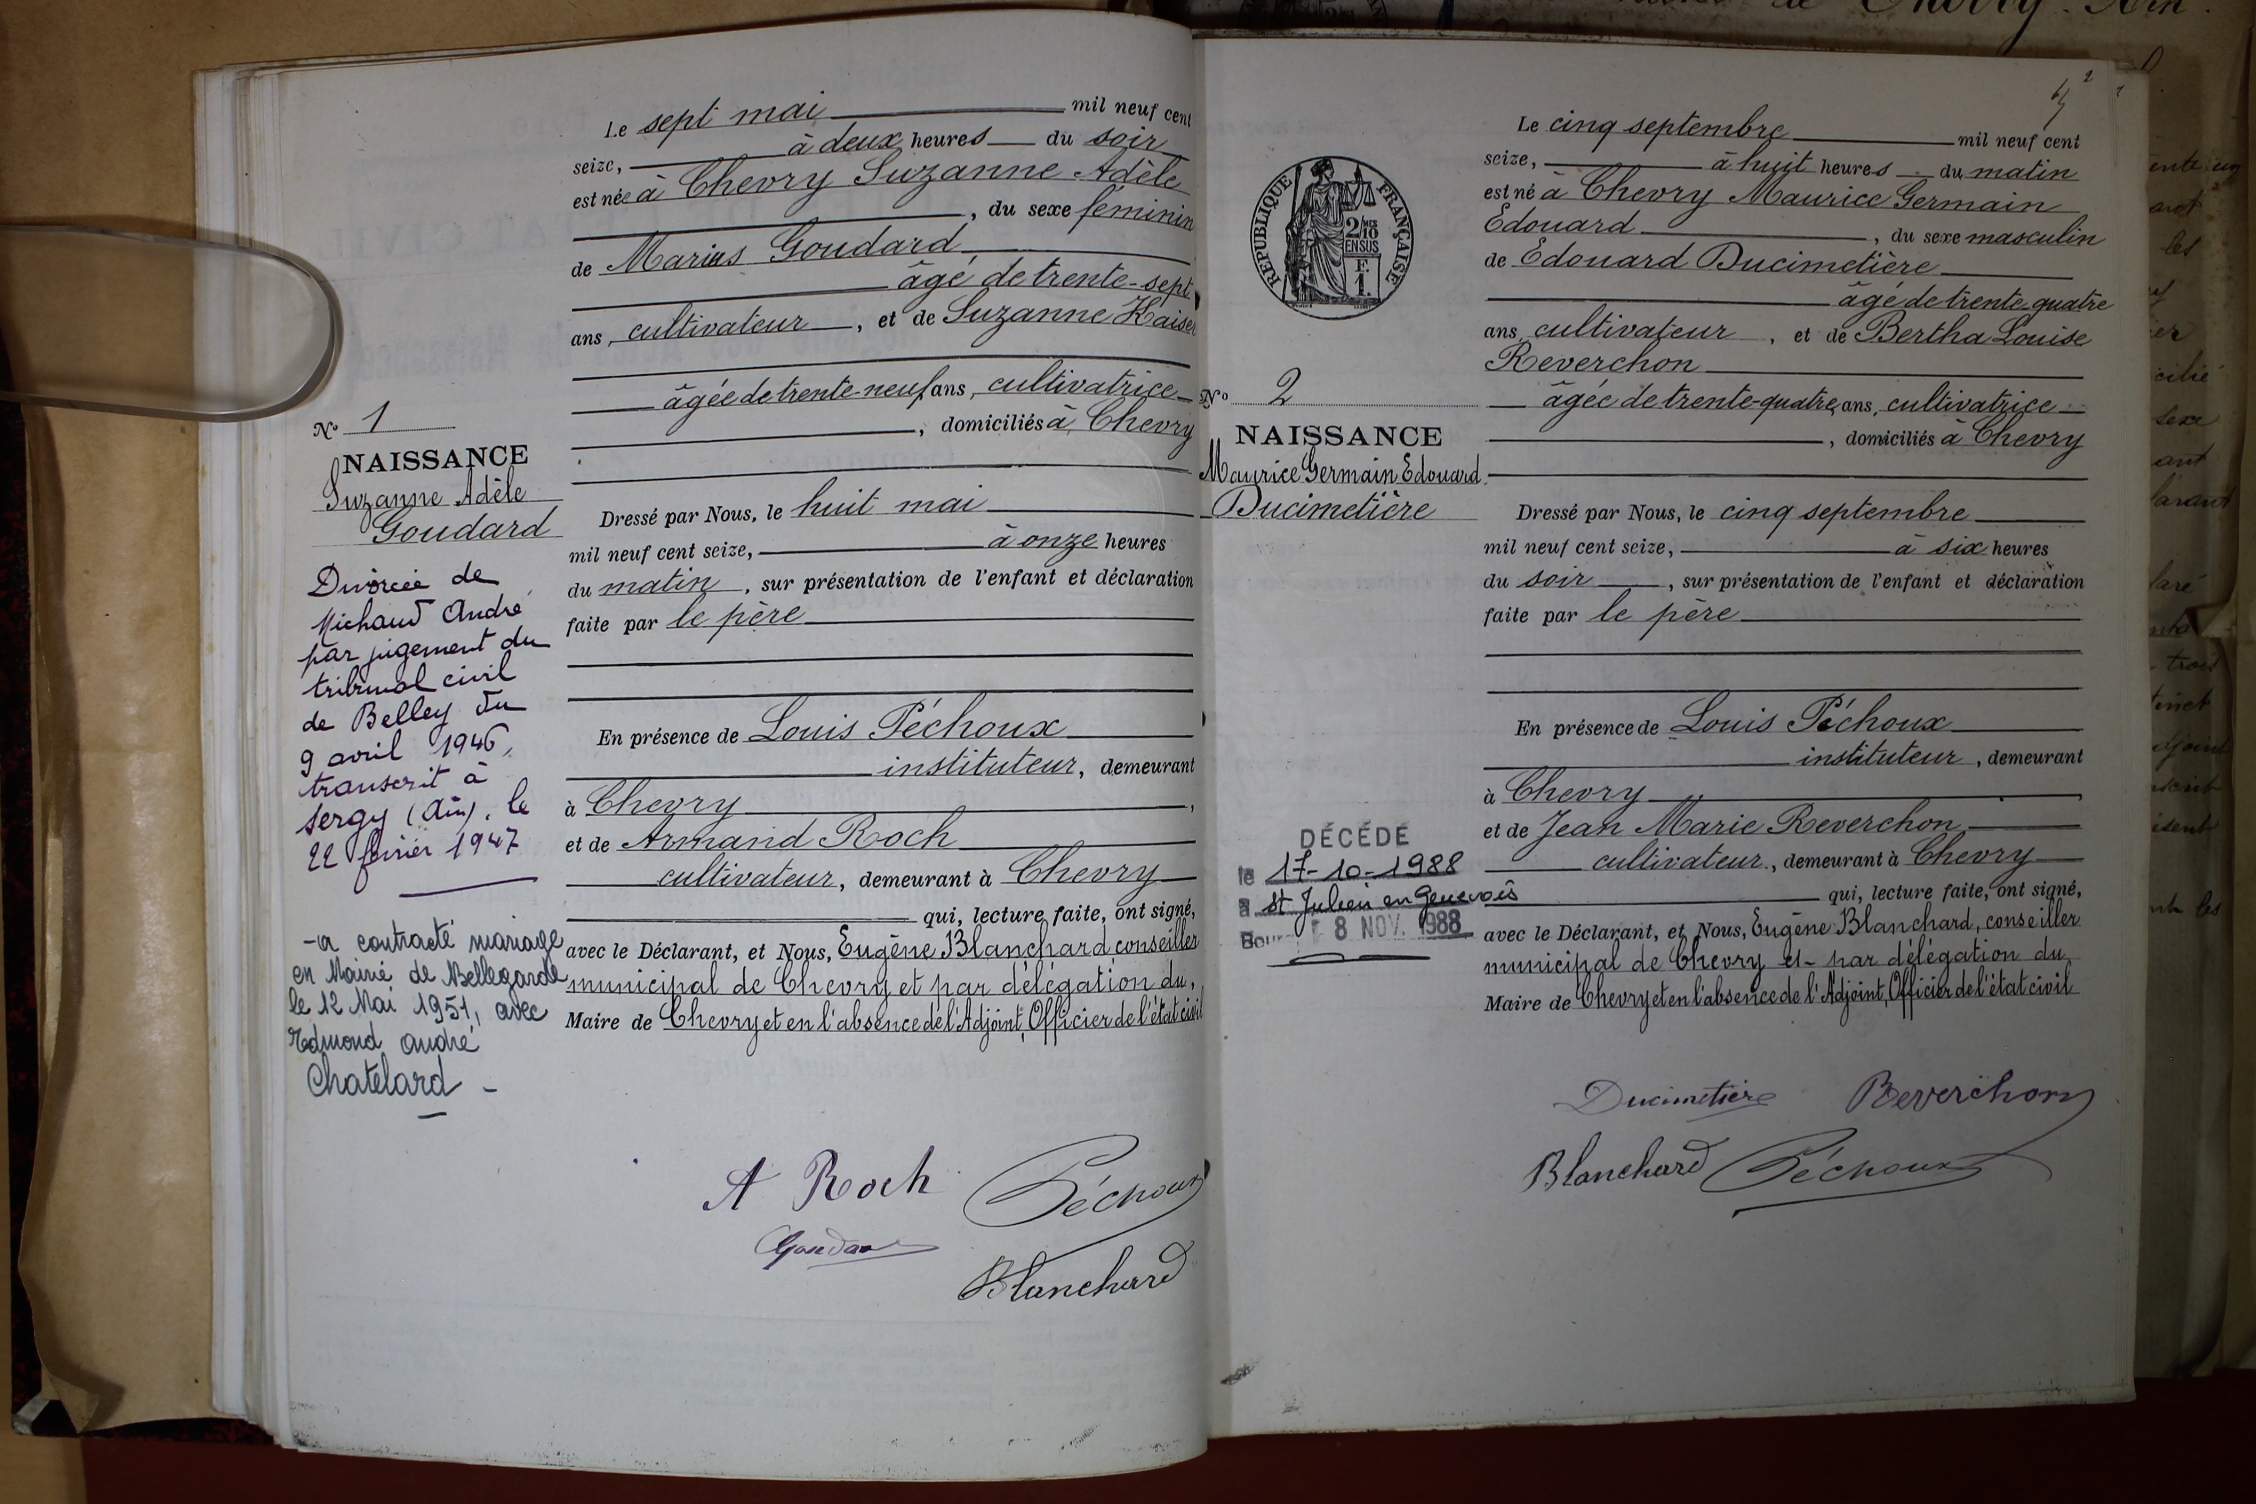 Le sept mai mil neuf cent
seize, à deux heures du soir
est née à Chevry Suzanne Adèle
, du sexe féminin
de Marius Goudard
âgé de trente-sept
ans, cultivateur, et de Suzanne Kaiser
âgée de trente-neuf ans, cultivatrice
, domiciliés à Chevry
N° 1
NAISSANCE
Suzanne Adèle
Goudard
Divorcée de
Michaud André
par jugement du
tribunal civil
de Belley du
9 avril 1946,
transcrit à
Sergy (Ain), le
22 février 1947
- a contracté mariage
en Mairie de Bellegarde
le 12 Mai 1951, avec
Edmond André
Chatelard -
Dressé par Nous, le huit mai
mil neuf cent seize, à onze heures
du matin, sur présentation de l'enfant et déclaration
faite par le père
En présence de Louis Péchoux
instituteur, demeurant
à Chevry,
et de Armand Roch
cultivateur, demeurant à Chevry
qui, lecture faite, ont signé,
avec le Déclarant, et Nous, Eugène Blanchard conseiller
municipal de Chevry et par délégation du,
Maire de Chevry et en l'absence de l'Adjoint, Officier de l'état civil
A Roch Péchoux
Goudard
Blanchard
2
REPUBLIQUE FRANÇAISE
2/10
EN SUS
F.
1.
Le cinq septembre mil neuf cent
seize, à huit heures du matin
est né à Chevry Maurice Germain
Edouard, du sexe masculin
de Edouard Ducimetière
âgé de trente-quatre
ans, cultivateur, et de Bertha Louise
Reverchon
âgée de trente-quatre ans, cultivatrice
, domiciliés à Chevry
N° 2
NAISSANCE
Maurice Germain Edouard
Ducimetière
DÉCÉDÉ
le 17-10-1988
à St Julien en Genevois
8 NOV. 1988
Dressé par Nous, le cinq septembre
mil neuf cent seize, à six heures
du soir, sur présentation de l'enfant et déclaration
faite par le père
En présence de Louis Péchoux
instituteur, demeurant
à Chevry,
et de Jean Marie Reverchon
cultivateur, demeurant à Chevry
qui, lecture faite, ont signé,
avec le Déclarant, et Nous, Eugène Blanchard, conseiller
municipal de Chevry et par délégation du
Maire de Chevry et en l'absence de l'Adjoint, Officier de l'état civil
Ducimetière Reverchon
Blanchard Péchoux